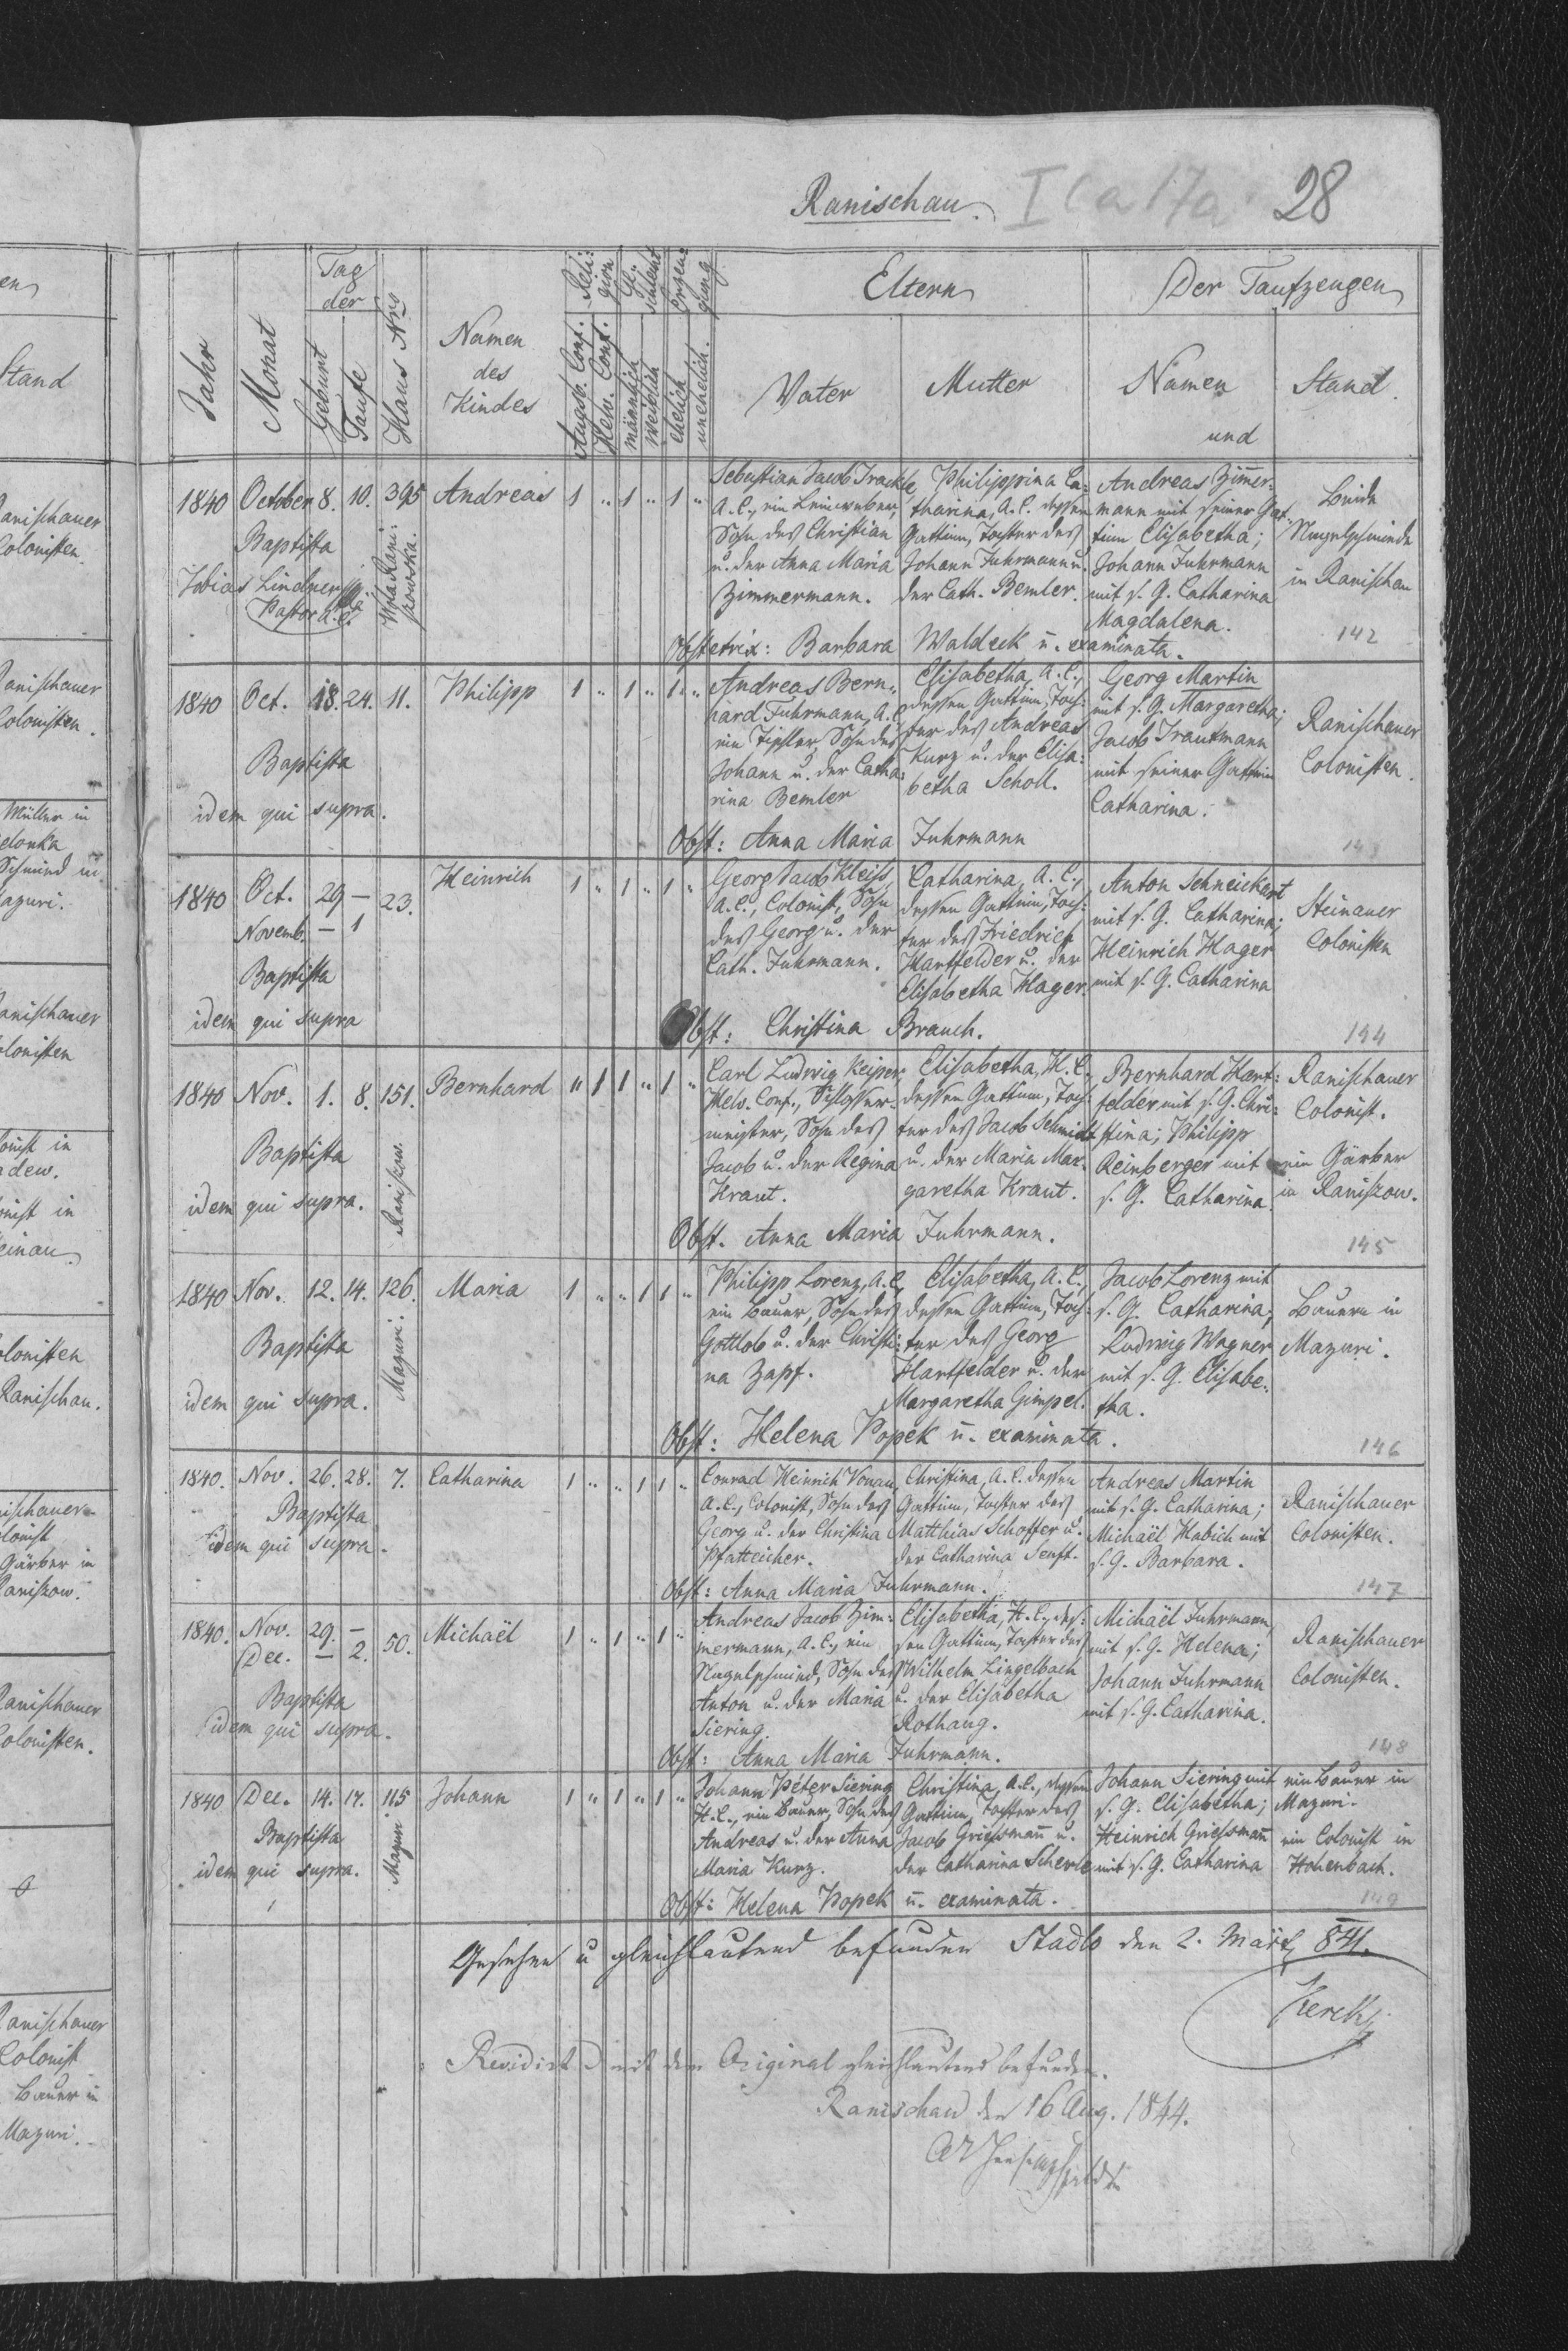 Ranischau. I C a 17a 28
Tag der
Reli:gion
Ge:schlecht
Erzeu:gung
Eltern
Der Taufzeugen
Jahr
Monat
Geburt
Taufe
Haus Nro
Namen des Kindes
Augsb. Conf.
Helv. Conf.
männlich
weiblich
ehelich
unehelich.
Vater
Mutter
Namen
und
Stand.
1840 October 8. 10. 395 Andreas 1 " 1 " 1 "
Baptista
Tobias Lindner
Pastor A. C.
Wola Rani:
Sebastian Jacob Trackle,
A. C., ein Leinweber,
Sohn des Christian
u. der Anna Maria
Zimmermann.
Philippina Ca:
tharina, A. C. dessen
Gattinn, Tochter des
Johann Fuhrmann u.
der Cath. Bemler.
Andreas Zimmer:
mann mit seiner Gat:
tinn Elisabetha;
Johann Fuhrmann
mit s. G. Catharina
Magdalena.
Beide
Nagelschmiede
in Ranischau
142
Obstetrix: Barbara Waldeck u. examinata.
1840 Oct. 18. 24. 11. Philipp 1 " 1 " 1 "
Baptista
idem qui supra.
Andreas Bern:
hard Fuhrmann, A. C.
ein Tischler, Sohn des
Johann u. der Catha:
rina Bemler
Elisabetha, A. C.,
dessen Gattinn, Toch:
ter des Andreas
Kurz u. der Elisa:
betha Scholl.
Georg Martin
mit s. G. Margaretha;
Jacob Trautmann
mit seiner Gattinn
Catharina.
Ranischauer
Colonisten.
143
Obst: Anna Maria Fuhrmann
1840 Oct. 29 — 23. Heinrich 1 " 1 " 1 "
Novemb. — 1
Baptista
idem qui supra
Georg Jacob Kleiss,
A. C., Colonist, Sohn
des Georg u. der
Cath. Fuhrmann.
Catharina, A. C.,
dessen Gattinn, Toch:
ter des Friedrich
Hartfelder u. der
Elisabetha Hager.
Anton Schneickart
mit s. G. Catharina;
Heinrich Hager
mit s. G. Catharina
Steinauer
Colonisten
144
Obst: Christina Brauch.
1840 Nov. 1. 8. 151. Bernhard " 1 1 " 1 "
Baptista
idem qui supra.
Raniszow.
Carl Ludwig Keiper,
Helv. Conf., Schlosser:
meister, Sohn des
Jacob u. der Regina
Kraut.
Elisabetha, H. C.,
dessen Gattinn, Toch:
ter des Jacob Schmidt
u. der Maria Mar:
garetha Kraut.
Bernhard Hart:
felder mit s. G. Chri:
stina; Philipp
Reinberger mit
s. G. Catharina.
Ranischauer
Colonist.
ein Gärber
in Raniszow.
145
Obst. Anna Maria Fuhrmann.
1840 Nov. 12. 14. 126. Maria 1 " " 1 1 "
Baptista
idem qui supra.
Mazuri.
Philipp Lorenz, A. C.,
ein Bauer, Sohn des
Gottlob u. der Christi:
na Zapf.
Elisabetha, A. C.,
dessen Gattinn, Toch:
ter des Georg
Hartfelder u. der
Margaretha Gimpel.
Jacob Lorenz mit
s. G. Catharina;
Ludwig Wagner
mit s. G. Elisabe:
tha.
Bauern in
Mazuri.
146
Obst: Helena Popek u. examinata.
1840. Nov. 26. 28. 7. Catharina 1 " " 1 1 "
Baptista
idem qui supra.
Conrad Heinrich Vonau,
A. C., Colonist, Sohn des
Georg u. der Christina
Pfatteicher.
Christina, A. C. dessen
Gattinn, Tochter des
Matthias Schoffer u.
der Catharina Senft.
Andreas Martin
mit s. G. Catharina;
Michaël Habich mit
s. G. Barbara.
Ranischauer
Colonisten.
147
Obst: Anna Maria Fuhrmann.
1840. Nov. 29. — 50. Michaël 1 " 1 " 1 "
Dec. — 2.
Baptista
idem qui supra.
Andreas Jacob Zim:
mermann, A. C., ein
Nagelschmied, Sohn des
Anton u. der Maria
Siering.
Elisabetha, H. C., des:
sen Gattinn, Tochter des
Wilhelm Lingelbach
u. der Elisabetha
Rothaug.
Michaël Fuhrmann
mit s. G. Helena;
Johann Fuhrmann
mit s. G. Catharina.
Ranischauer
Colonisten.
148
Obst: Anna Maria Fuhrmann.
1840 Dec. 14. 17. 115 Johann 1 " 1 " 1 "
Baptista
idem qui supra.
Mazuri.
Johann Peter Siering
H. C., ein Bauer, Sohn des
Andreas u. der Anna
Maria Kurz.
Christina, A. C., dessen
Gattinn, Tochter des
Jacob Griessmann u.
der Catharina Scherle
Johann Siering mit
s. G. Elisabetha;
Heinrich Griessmann
mit s. G. Catharina
ein Bauer in
Mazuri.
ein Colonist in
Hohenbach.
149
Obst: Helena Popek u. examinata.
Gesehen u gleichlautend befunden Stadlo den 2. März 841.
Revidirt mit dem Original gleichlautend befunden.
Ranischau den 16 Aug. 1844.
Stand
Ranischauer
Colonisten.
Ranischauer
Colonisten.
Müller in
Schmied in
Mazuri.
Ranischauer
Colonisten
Colonisten
Ranischau.
Gärber in
Raniszow.
Ranischauer
Colonisten.
Ranischauer
Colonist
Bauer in
Mazuri.